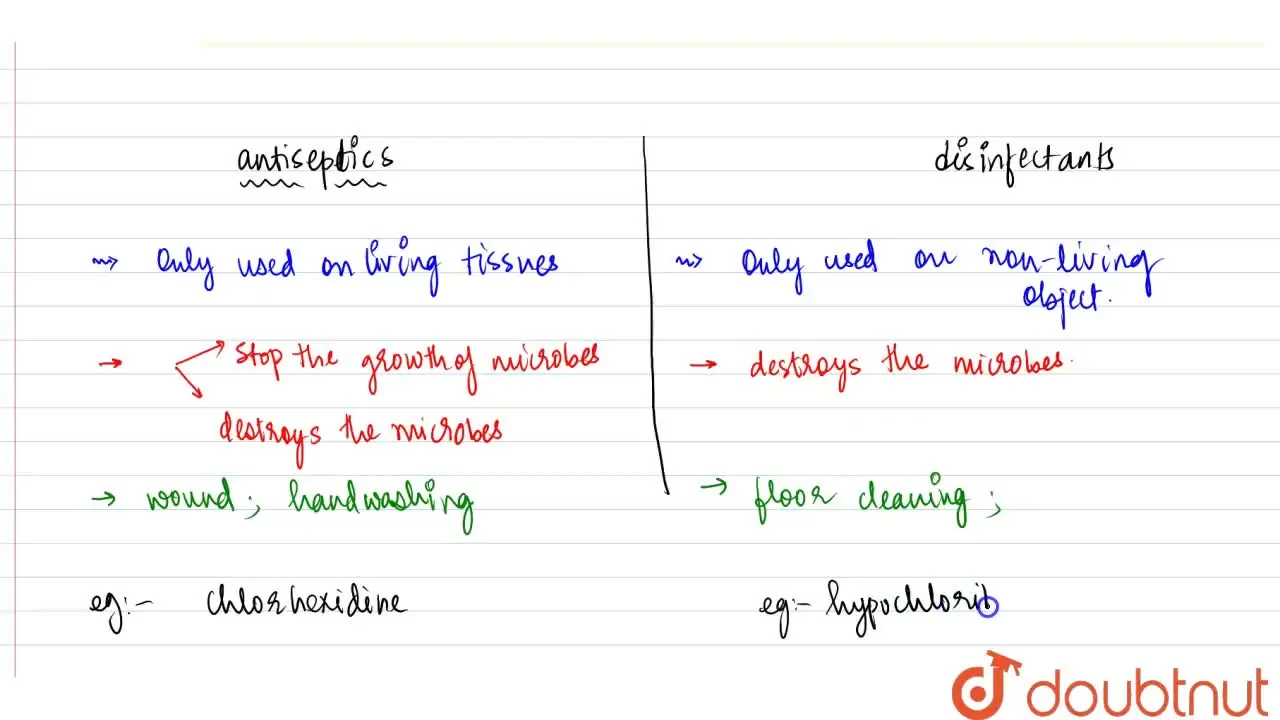 antiseptics
disinfectants
⇝ Only used on living tissues
⇝ Only used on non-living
object.
→ Stop the growth of microbes
→ destroys the microbes.
destroys the microbes
→ wound; handwashing
→ floor cleaning;
eg:- chlorhexidine
eg:- hypochlorit
doubtnut